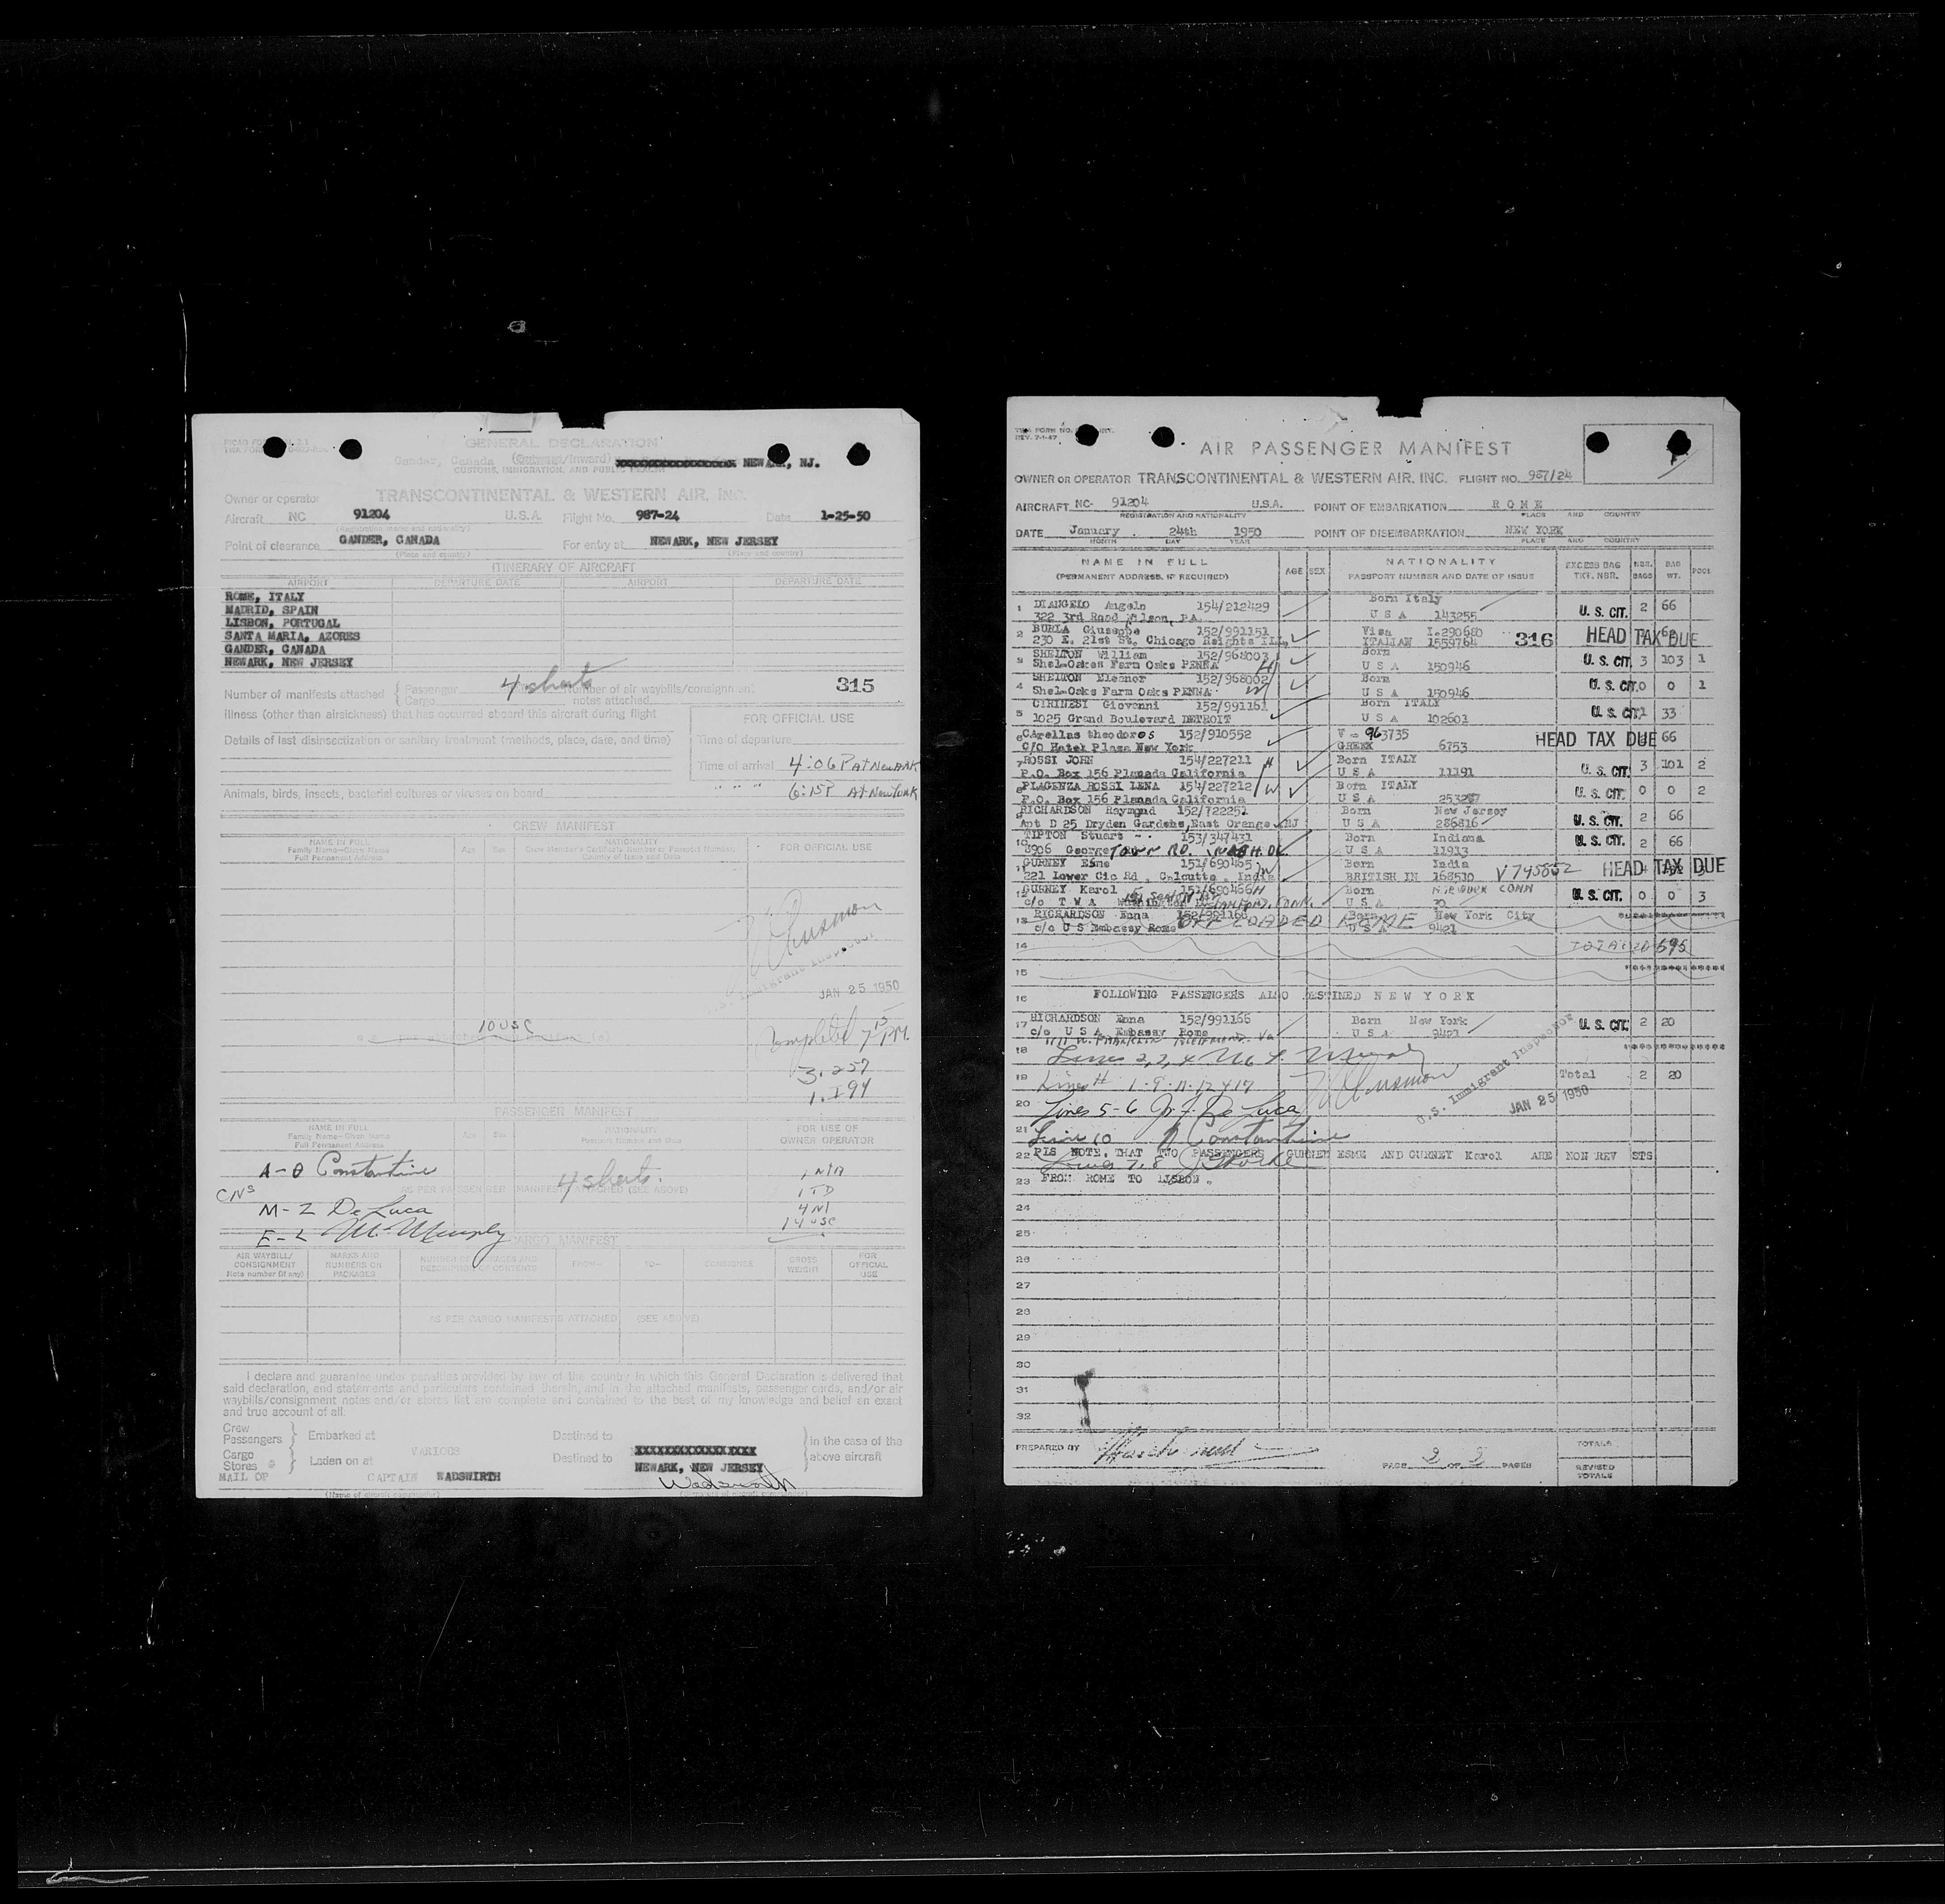 GENERAL DECLARATION
(Outward/Inward)
Gander, Canada NEWARK, NJ.
CUSTOMS, IMMIGRATION, AND PUBLIC HEALTH
Owner or operator TRANSCONTINENTAL & WESTERN AIR, INC.
Aircraft NC 91204 U.S.A. Flight No. 987-24 Date 1-25-50
(Registration marks and nationality)
Point of clearance GANDER, CANADA For entry at NEWARK, NEW JERSEY
(Place and country) (Place and country)
ITINERARY OF AIRCRAFT
AIRPORT DEPARTURE DATE AIRPORT DEPARTURE DATE
ROME, ITALY
MADRID, SPAIN
LISBON, PORTUGAL
SANTA MARIA, AZORES
GANDER, CANADA
NEWARK, NEW JERSEY
Number of manifests attached { Passenger 4 sheets Number of air waybills/consignment 315
Cargo notes attached
Illness (other than airsickness) that has occurred aboard this aircraft during flight FOR OFFICIAL USE
Details of last disinsectization or sanitary treatment (methods, place, date, and time) Time of departure
Time of arrival 4:06 P AT NEWARK
Animals, birds, insects, bacterial cultures or viruses on board 6:15P AT NEW YORK
CREW MANIFEST
NAME IN FULL
Family Name—Given Name
Full Permanent Address
Age Sex
NATIONALITY
Crew Member's Certificate Number or Passport Number,
Country of Issue and Date
FOR OFFICIAL USE
JAN 25 1950
10 USC
Completed 7 15 PM.
3. 257
1. I94
PASSENGER MANIFEST
NAME IN FULL
Family Name—Given Name
Full Permanent Address
Age Sex
NATIONALITY
Passport Number and Date
FOR USE OF
OWNER OPERATOR
A-D Constantine
AS PER PASSENGER MANIFEST ATTACHED (SEE ABOVE) 4 sheets.
1 TD
4 NI
14 USC
M-Z De Luca
E-L M. Murphy
CARGO MANIFEST
AIR WAYBILL/
CONSIGNMENT
Note number (if any)
MARKS AND
NUMBERS ON
PACKAGES
NUMBER OF PACKAGES AND
DESCRIPTION OF CONTENTS
FROM— TO— CONSIGNEE
GROSS
WEIGHT
FOR
OFFICIAL
USE
AS PER CARGO MANIFESTS ATTACHED (SEE ABOVE)
I declare and guarantee under penalties provided by law of the country in which this General Declaration is delivered that
said declaration, and statements and particulars contained therein, and in the attached manifests, passenger cards, and/or air
waybills/consignment notes and/or stores list are complete and contained to the best of my knowledge and belief an exact
and true account of all:
Crew
Passengers } Embarked at Destined to
VARIOUS XXXXXXXXXXXXXXXXX
Cargo
Stores } Laden on at Destined to NEWARK, NEW JERSEY
in the case of the
above aircraft
MAIL OF CAPTAIN WADSWIRTH Wadsworth
(Name of aircraft commander)
REV. 7-1-47
AIR PASSENGER MANIFEST
OWNER OR OPERATOR TRANSCONTINENTAL & WESTERN AIR, INC. FLIGHT NO. 987/24
AIRCRAFT NC- 91204 U.S.A. POINT OF EMBARKATION R O M E
REGISTRATION AND NATIONALITY PLACE AND COUNTRY
DATE January 24th 1950 POINT OF DISEMBARKATION NEW YORK
MONTH DAY YEAR PLACE AND COUNTRY
NAME IN FULL
(PERMANENT ADDRESS, IF REQUIRED)
AGE SEX
NATIONALITY
PASSPORT NUMBER AND DATE OF ISSUE
EXCESS BAG
TKT. NBR.
NBR.
BAGS
BAG
WT.
POOL
1 DIANGELO Angelo 154/212429 Born Italy
322 3rd Raod Wilson, PA. U S A 143255 U. S. CIT. 2 66
2 BURLA Giuseppe 152/991151 Visa I-290680
230 E. 21st St. Chicago Heights ILL, ITALIAN 1559764 316 HEAD TAX DUE
3 SHELTON William 152/968003 Born
Shel-Oakes Farm Oaks PENNA H U S A 150946 U. S. CIT. 3 103 1
4 SHELTON Eleanor 152/968002 Born
Shel-Oaks Farm Oaks PENNA W U S A 150946 U. S. CIT. 0 0 1
5 CIRINESI Giovanni 152/991161 Born ITALY
1025 Grand Boulevard DETROIT U S A 102601 U. S. CIT. 1 33
6 CArellas theodoros 152/910552 V - 963735
C/O Hotel Plaza New York GREEK 6753 HEAD TAX DUE 66
7 ROSSI JOHN 154/227211 H Born ITALY
P.O. Box 156 Planada California U S A 11191 U. S. CIT. 3 101 2
8 PIAGENZA ROSSI LENA 154/227212 W Born ITALY
P.O. Box 156 Planada California U S A 253287 U. S. CIT. 0 0 2
RICHARDSON Raymond 152/722251 Born New Jersey
Apt D 25 Dryden Gardens, East Orange NJ U S A 286816 U. S. CIT. 2 66
10 TIPTON Stuart 153/347431 Born Indiana
3906 George TOWN RD. WASH. DC. U S A 11913 U. S. CIT. 2 66
11 GURNEY Esme 151/690465 W Born India
221 Lower Cic Rd, Calcutta, India BRITISH IN 168530 V745852 HEAD TAX DUE
12 GURNEY Karol 151/690466 H Born NORWALK CONN
c/o T W A Washington U S A 70 U. S. CIT. 0 0 3
13 RICHARDSON Edna 152/991166 Born New York City
c/o U S Embassy Rome OFF LOADED ROME U S A 9421
14 TOTAL 20 695
15
16 FOLLOWING PASSENGERS ALSO DESTINED N E W Y O R K
17 RICHARDSON Edna 152/991166 Born New York
c/o U S A Embassy Rome U S A 9421 U. S. CIT. 2 20
1111 W. FRANKLIN RICHMOND. Va
18 Lines 2, 3, 4 M. F. Murphy
19 Lines # 1-9-11-12 & 17 Total 2 20
U.S. Immigrant Inspector
JAN 25 1950
20 Lines 5-6 De Luca
21 Line 10 Constantine
22 PLS NOTE, THAT TWO PASSENGERS GURNEY ESME AND GURNEY Karol ARE NON REV STS
Lines 7, 8
23 FROM ROME TO LISBON.
24
25
26
27
28
29
30
31
32
PREPARED BY PAGE 2 OF 2 PAGES
TOTALS
REVISED
TOTALS